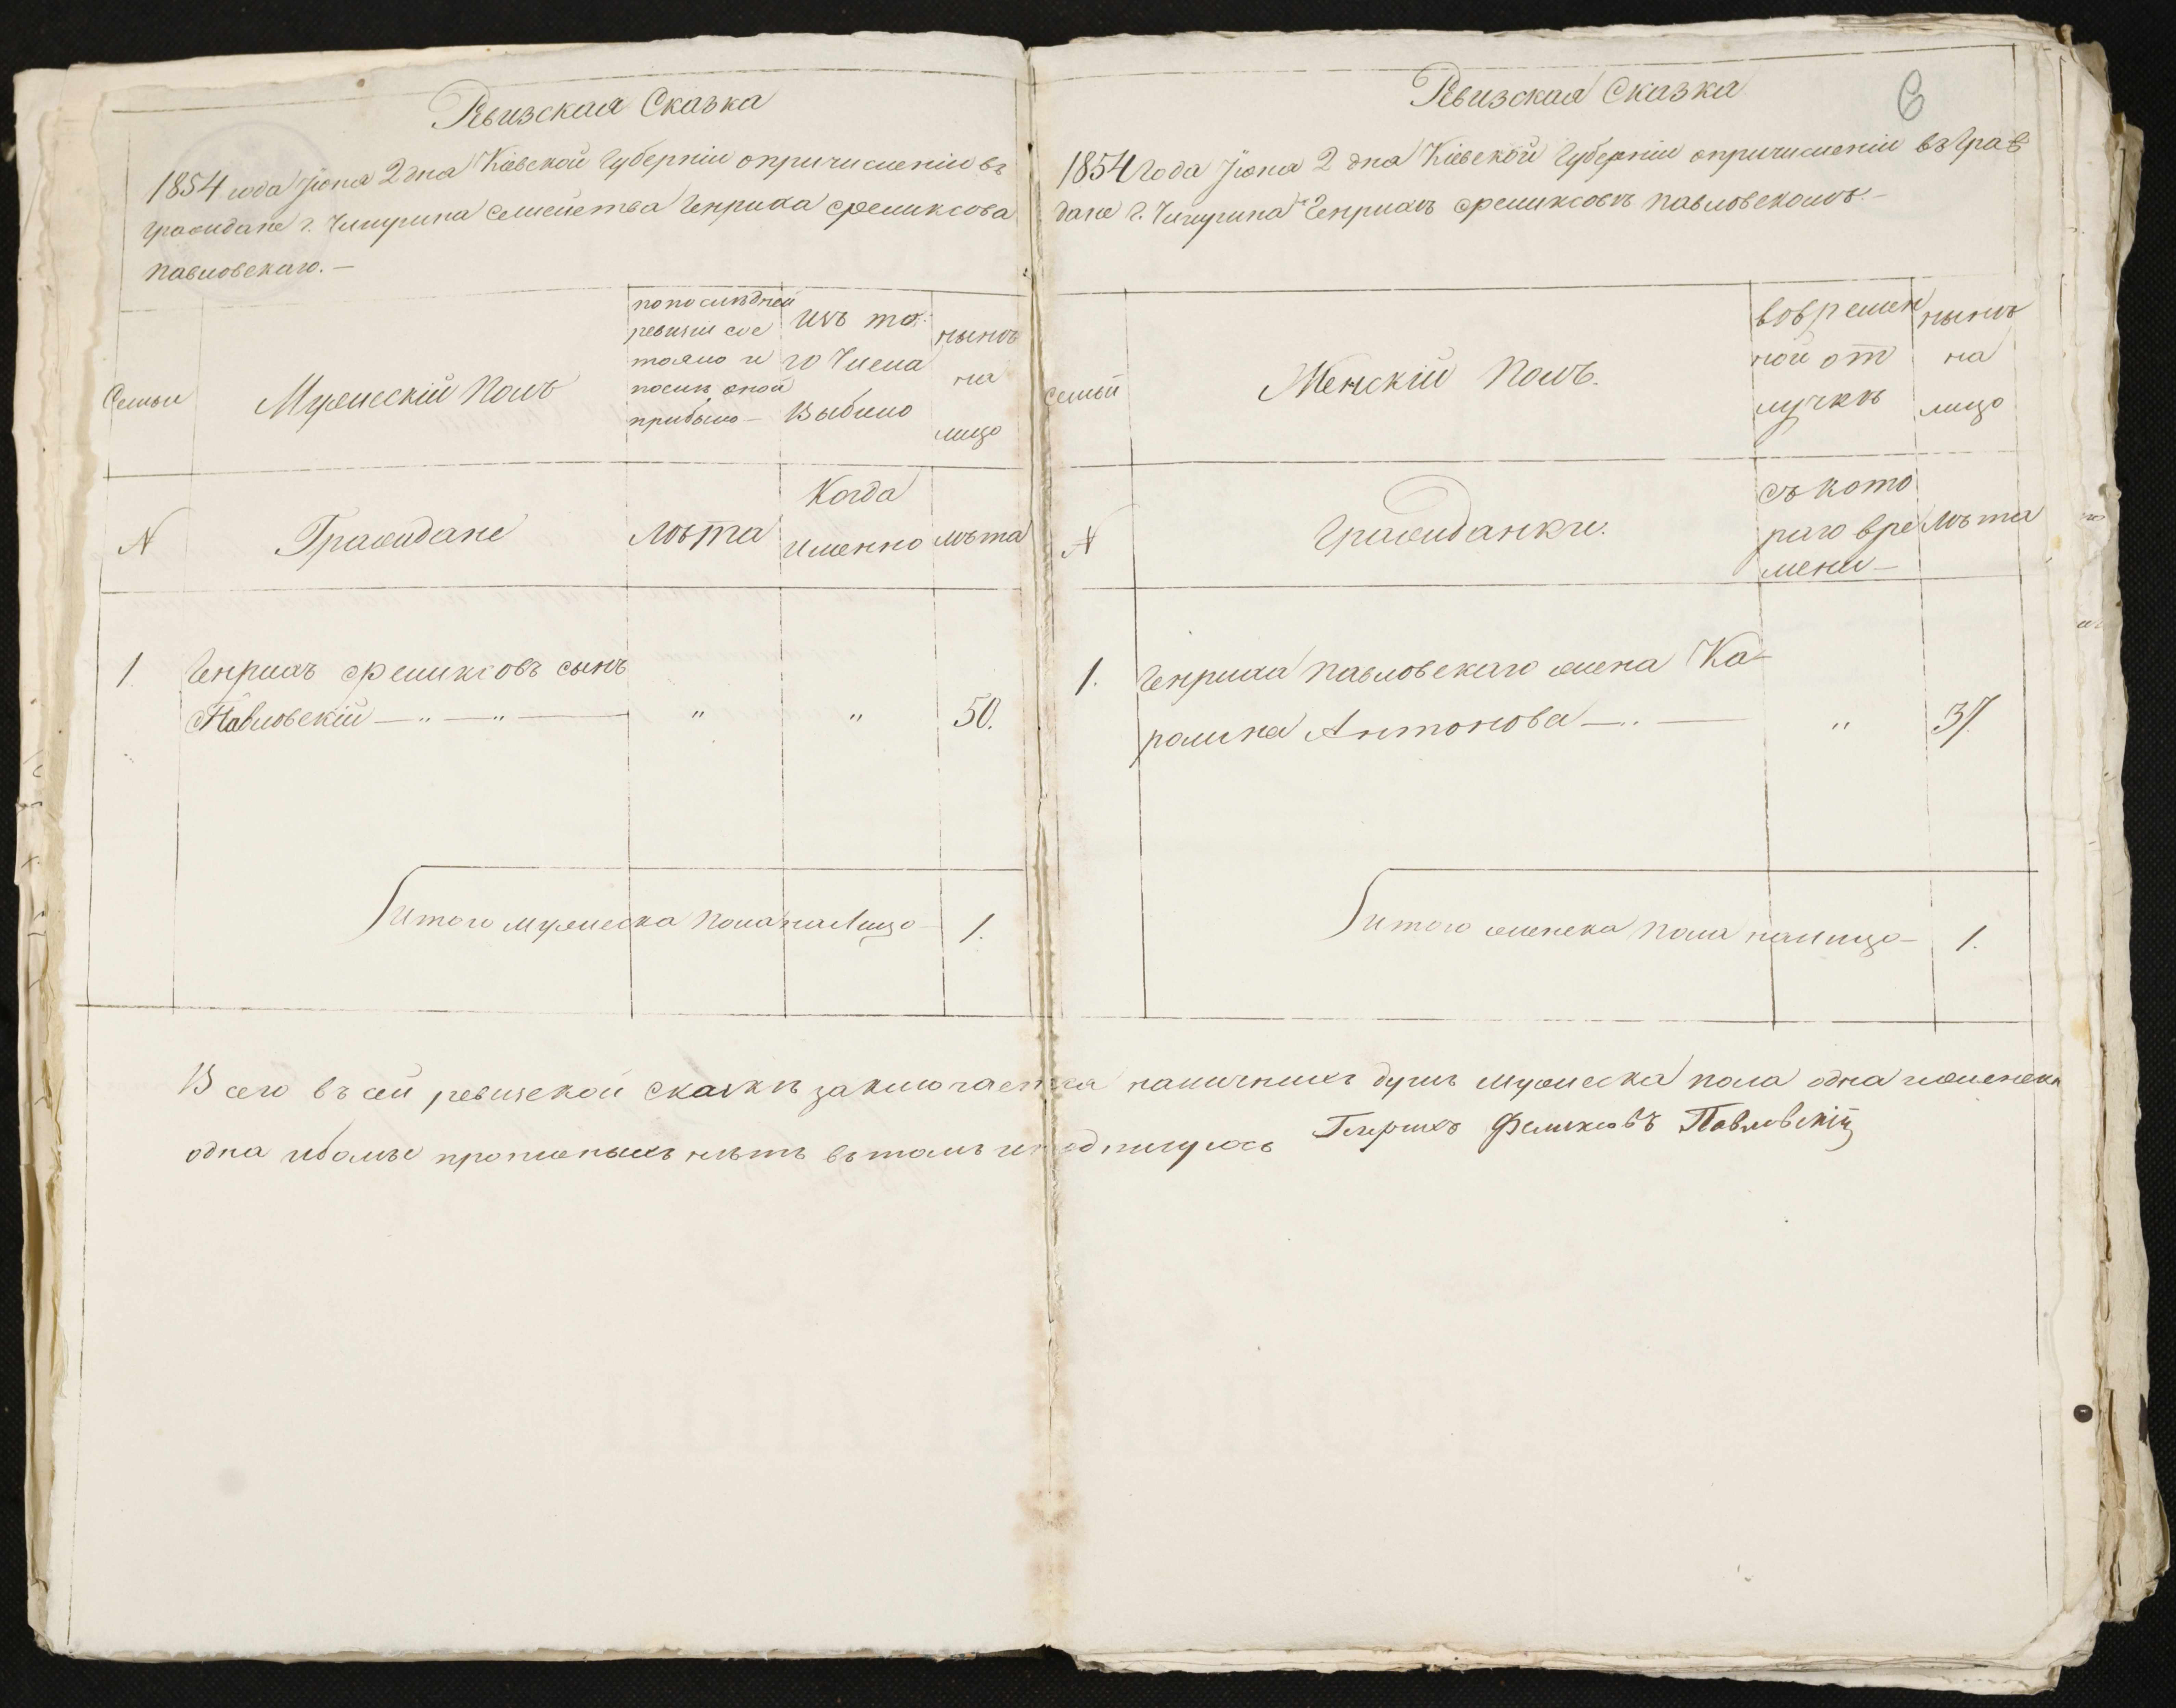 Ревизская Сказка
1854 года Іюня 2 дня Кіевской Губерніи опричисленіи въ
граждане г. Чигирина Семейства Генриха Феликсова
Павловскаго. —
Семьи
Мужескій Полъ
по последней
ревизіи сос
тояло и
после оной
прибыло —
Изъ то
го Числа
Выбыло
нынѣ
на
лицо
N
Граждане
Лѣта
Когда
именно
Лѣта
1.
Генрихъ Феликсовъ сынъ
Павловскій — „ — „ —
„
„
50.
Итого мужеска Пола на Лицо —
1.
Всего въ сей ревизской сказкѣ заключается наличныхъ душъ Мужеска пола одна и женска
одна и болѣе прописныхъ нѣтъ въ томъ и подпишусь Генрихъ Феликсовъ Павловскій
Ревизская Сказка
6
1854 Года Іюня 2 дня Кіевской Губерніи опричисленіи въ Граж
дане г. Чигирина Генрихъ Феликсовъ Павловскомъ. —
Семьи
Женскій Полъ.
во времен
ной от
лучкѣ
нынѣ
на
лицо
N
Гражданки.
съ кото
раго вре
мени —
Лѣта
1.
Генриха Павловскаго жена Ка-
ролина Антонова — „ —
„
37
Итого женска Пола на лицо —
1.